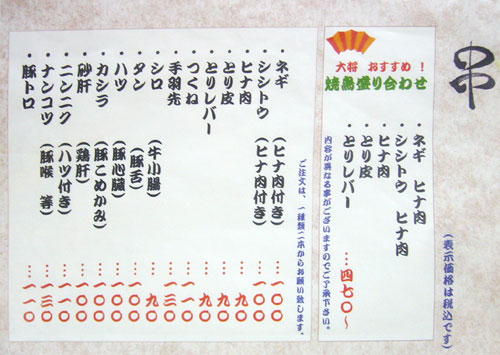 串
(表示価格は税込です)
大将 おすすめ！
焼鳥盛り合わせ
・ネギ ヒナ肉
・シシトウ ヒナ肉
・ヒナ肉
・とり皮
・とりレバー …四七〇～
内容が異なる事がございますのでご了承下さい。
・ネギ (ヒナ肉付き) …一〇〇
・シシトウ (ヒナ肉付き) …一〇〇
・ヒナ肉 …九〇
・とり皮 …九〇
・とりレバー …九〇
・つくね …一一〇
・手羽先 …一三〇
・シロ (牛小腸) …九〇
・タン (豚舌) …一〇〇
・ハツ (豚心臓) …一〇〇
・カシラ (豚こめかみ) …一〇〇
・砂肝 (鶏肝) …一〇〇
・ニンニク (ハツ付き) …一一〇
・ナンコツ (豚喉 等) …一三〇
・豚トロ …一一〇
ご注文は、一種類二本からお願い致します。